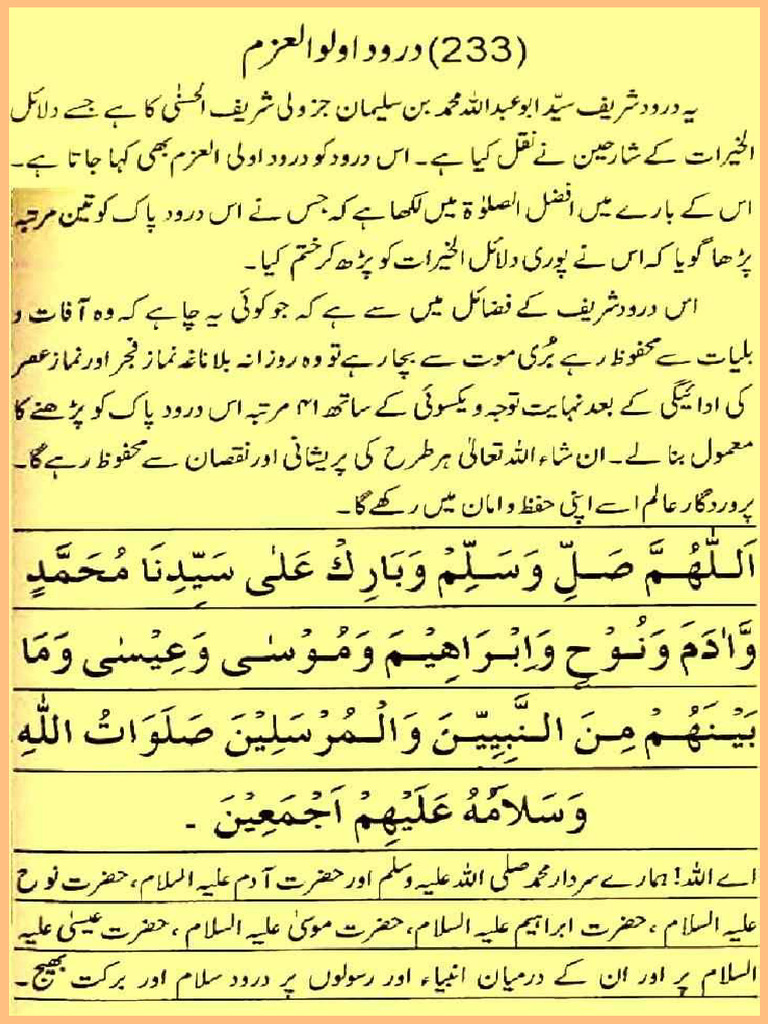 (233) درود اولو العزم
یہ درود شریف سیّد ابو عبد اللہ محمد بن سلیمان جزولی شریف الحسنٰی کا ہے جسے دلائل
الخیرات کے شارحین نے نقل کیا ہے۔ اس درود کو درود اولی العزم بھی کہا جاتا ہے۔
اس کے بارے میں افضل الصلوٰۃ میں لکھا ہے کہ جس نے اس درود پاک کو تین مرتبہ
پڑھا گویا کہ اس نے پوری دلائل الخیرات کو پڑھ کر ختم کیا۔
اس درود شریف کے فضائل میں سے ہے کہ جو کوئی یہ چاہے کہ وہ آفات و
بلیات سے محفوظ رہے بُری موت سے بچا رہے تو وہ روزانہ بلاناغہ نماز فجر اور نماز عصر
کی ادائیگی کے بعد نہایت توجہ و یکسوئی کے ساتھ ۴۱ مرتبہ اس درود پاک کو پڑھنے کا
معمول بنا لے۔ ان شاء اللہ تعالیٰ ہر طرح کی پریشانی اور نقصان سے محفوظ رہے گا۔
پروردگار عالم اسے اپنی حفظ و امان میں رکھے گا۔
اَللّٰهُمَّ صَلِّ وَسَلِّمْ وَبَارِكْ عَلٰى سَيِّدِنَا مُحَمَّدٍ
وَّاٰدَمَ وَنُوْحٍ وَاِبْرَاهِيْمَ وَمُوْسٰى وَعِيْسٰى وَمَا
بَيْنَهُمْ مِنَ النَّبِيِّيْنَ وَالْمُرْسَلِيْنَ صَلَوَاتُ اللّٰهِ
وَسَلَامُهُ عَلَيْهِمْ اَجْمَعِيْنَ ۔
اے اللہ! ہمارے سردار محمد صلی اللہ علیہ وسلم اور حضرت آدم علیہ السلام، حضرت نوح
علیہ السلام ، حضرت ابراہیم علیہ السلام، حضرت موسیٰ علیہ السلام ، حضرت عیسیٰ علیہ
السلام پر اور ان کے درمیان انبیاء اور رسولوں پر درود سلام اور برکت بھیج۔